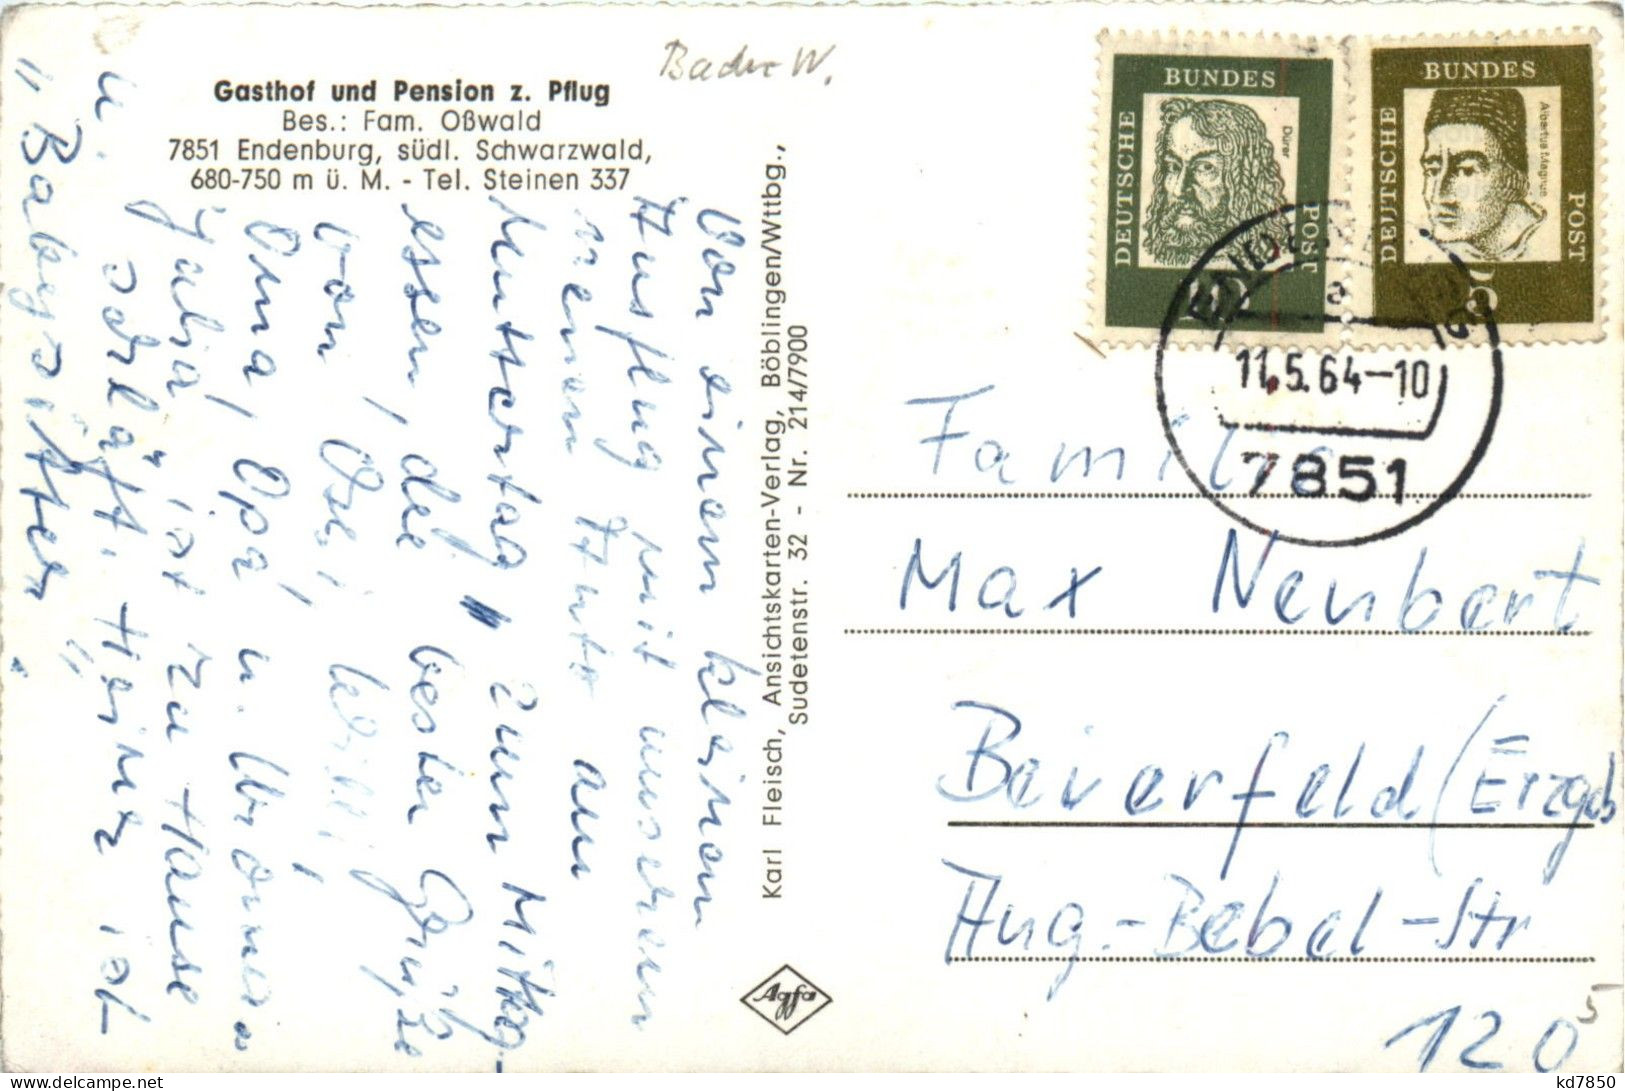 Baden W.
Gasthof und Pension z. Pflug
Bes.: Fam. Oßwald
7851 Endenburg, südl. Schwarzwald,
680-750 m ü. M. - Tel. Steinen 337
Von einem kleinen
Ausflug mit unserem
neuen Auto am
Muttertag zum Mittag-
essen, die besten Grüße
von
Oma, Opa, u.
ist zu Hause
u. schläft. Heiner ist
"Babysitter".
Karl Fleisch, Ansichtskarten-Verlag, Böblingen/Wttbg.,
Sudetenstr. 32 - Nr. 214/7900
Agfa
DEUTSCHE BUNDES POST
Dürer
10
DEUTSCHE BUNDES POST
Albertus Magnus
ENDENBURG
a
11.5.64-10
7851
Familie
Max Neubert
Beierfeld (Erzgeb
Aug.-Bebel-Str
120
5
delcampe.net
kd7850